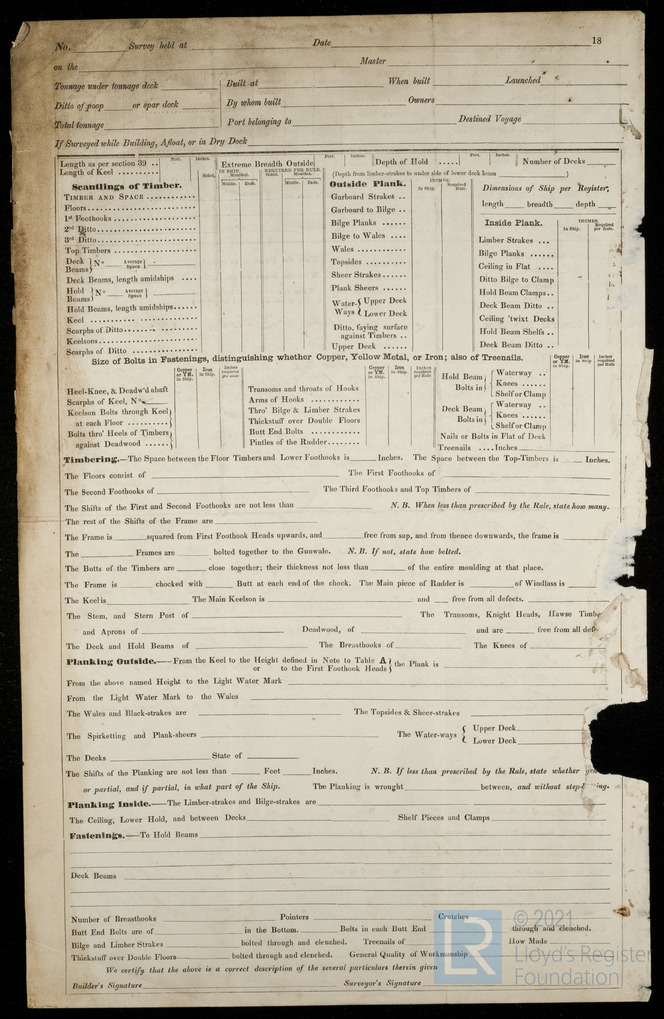 No. Survey held at Date 18
on the Master
Tonnage under tonnage deck Built at When built Launched
Ditto of poop or spar deck By whom built Owners
Total tonnage Port belonging to Destined Voyage
If Surveyed while Building, Afloat, or in Dry Dock
Feet. Inches. Feet. Inches. Feet. Inches.
Length as per section 39 .. Extreme Breadth Outside Depth of Hold ..... Number of Decks
Length of Keel (Depth from limber-strakes to under side of lower deck beam )
Scantlings of Timber.
IN SHIP. REQUIRED PER RULE.
Sided. Moulded. Sided. Moulded.
Middle. Ends. Middle. Ends.
TIMBER AND SPACE
Floors
1st Foothooks
2nd Ditto
3rd Ditto
Top Timbers
Deck Beams } No Average Space
Deck Beams, length amidships
Hold Beams } No Average Space
Hold Beams, length amidships
Keel
Scarphs of Ditto
Keelsons
Scarphs of Ditto
Outside Plank.
INCHES.
In Ship. Required per Rule.
Garboard Strakes ..
Garboard to Bilge ..
Bilge Planks ......
Bilge to Wales
Wales
Topsides
Sheer Strakes
Plank Sheers
Water-Ways { Upper Deck
Lower Deck
Ditto, faying surface
against Timbers ..
Upper Deck
Dimensions of Ship per Register,
length breadth depth
Inside Plank.
INCHES.
In Ship. Required per Rule.
Limber Strakes ...
Bilge Planks ......
Ceiling in Flat ....
Ditto Bilge to Clamp
Hold Beam Clamps..
Deck Beam Ditto ..
Ceiling 'twixt Decks
Hold Beam Shelfs ..
Deck Beam Ditto ..
Size of Bolts in Fastenings, distinguishing whether Copper, Yellow Metal, or Iron; also of Treenails.
Copper or YM. in Ship. Iron in Ship. Inches required per Rule
Copper or YM. in Ship. Iron in Ship. Inches required per Rule
Copper or YM. in Ship. Iron in Ship. Inches required per Rule
Heel-Knee, & Deadw'd abaft
Scarphs of Keel, No
Keelson Bolts through Keel
at each Floor
Bolts thro' Heels of Timbers
against Deadwood
Transoms and throats of Hooks
Arms of Hooks
Thro' Bilge & Limber Strakes
Thickstuff over Double Floors
Butt End Bolts
Pintles of the Rudder
Hold Beam Bolts in { Waterway ..
Knees
Shelf or Clamp
Deck Beam Bolts in { Waterway ..
Knees
Shelf or Clamp
Nails or Bolts in Flat of Deck
Treenails .... Inches
Timbering.—The Space between the Floor Timbers and Lower Foothooks is Inches. The Space between the Top-Timbers is Inches.
The Floors consist of The First Foothooks of
The Second Foothooks of The Third Foothooks and Top Timbers of
The Shifts of the First and Second Foothooks are not less than N. B. When less than prescribed by the Rule, state how many.
The rest of the Shifts of the Frame are
The Frame is squared from First Foothook Heads upwards, and free from sap, and from thence downwards, the frame is
The Frames are bolted together to the Gunwale. N. B. If not, state how bolted.
The Butts of the Timbers are close together; their thickness not less than of the entire moulding at that place.
The Frame is chocked with Butt at each end of the chock. The Main piece of Rudder is of Windlass is
The Keel is The Main Keelson is and free from all defects.
The Stem, and Stern Post of The Transoms, Knight Heads, Hawse Timbe
and Aprons of Deadwood, of and are free from all def
The Deck and Hold Beams of The Breasthooks of The Knees of
Planking Outside.—From the Keel to the Height defined in Note to Table A
or to the First Foothook Heads } the Plank is
From the above named Height to the Light Water Mark
From the Light Water Mark to the Wales
The Wales and Black-strakes are The Topsides & Sheer-strakes
The Spirketting and Plank-sheers The Water-ways { Upper Deck
Lower Deck
The Decks State of
The Shifts of the Planking are not less than Feet Inches. N. B. If less than prescribed by the Rule, state whether
or partial, and if partial, in what part of the Ship. The Planking is wrought between, and without step-
Planking Inside.—The Limber-strakes and Bilge-strakes are
The Ceiling, Lower Hold, and between Decks Shelf Pieces and Clamps
Fastenings.—To Hold Beams
Deck Beams
Number of Breasthooks Pointers Crutches
Butt End Bolts are of in the Bottom. Bolts in each Butt End through and clenched.
Bilge and Limber Strakes bolted through and clenched. Treenails of How Made
Thickstuff over Double Floors bolted through and clenched. General Quality of Workmanship
We certify that the above is a correct description of the several particulars therein given
Builder's Signature Surveyor's Signature
LR © 2021
Lloyd's Register
Foundation